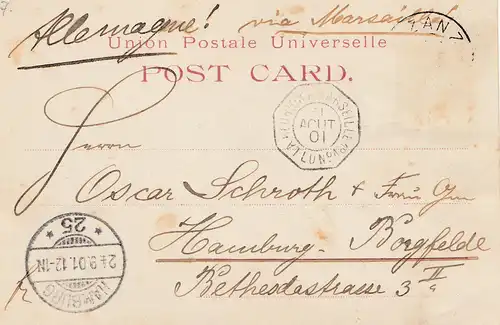 Allemagne! via Marseille!
Union Postale Universelle
POST CARD.
AOUT
01
Herrn
Oscar Schroth + Frau Gem
Hamburg-Borgfelde
Bethesdastrasse 3 II
HAMBURG
24.9.01.12-1N
* 25 *